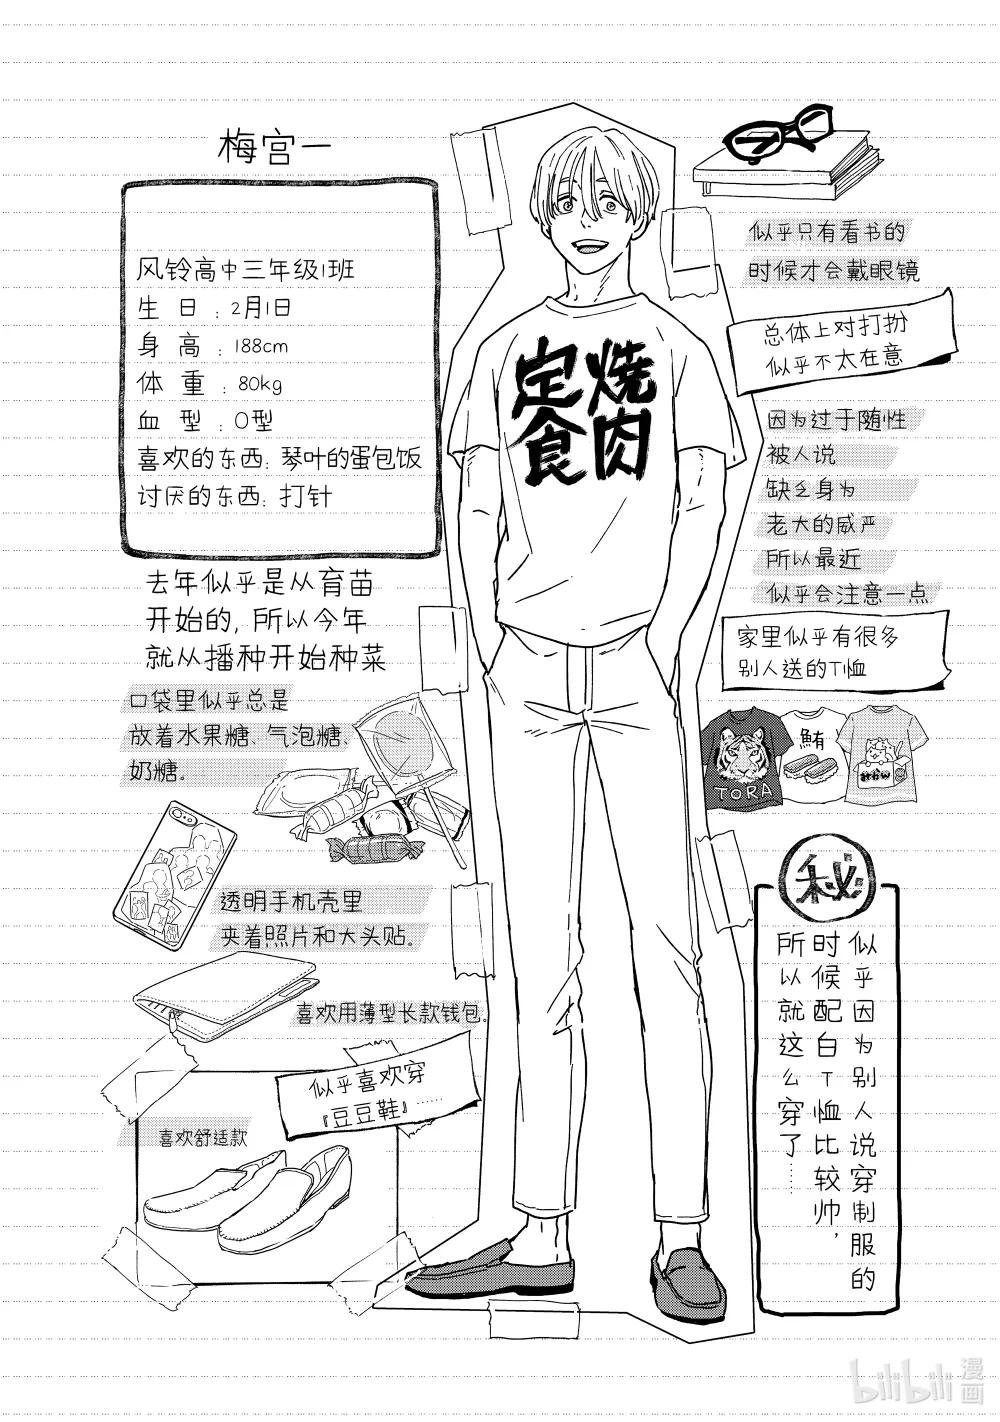 梅宫一
风铃高中三年级1班
生日:2月1日
身高:188cm
体重:80kg
血型:O型
喜欢的东西:琴叶的蛋包饭
讨厌的东西:打针
去年似乎是从育苗
开始的,所以今年
就从播种开始种菜
口袋里似乎总是
放着水果糖、气泡糖、
奶糖。
透明手机壳里
夹着照片和大头贴。
喜欢用薄型长款钱包。
似乎喜欢穿
『豆豆鞋』……
喜欢舒适款
焼肉
定食
似乎只有看书的
时候才会戴眼镜
总体上对打扮
似乎不太在意
因为过于随性
被人说
缺乏身为
老大的威严
所以最近
似乎会注意一点
家里似乎有很多
别人送的T恤
TORA
鮪
みかん
秘
似乎因为别人说穿制服的
时候配白T恤比较帅,
所以就这么穿了……
bilibili 漫画